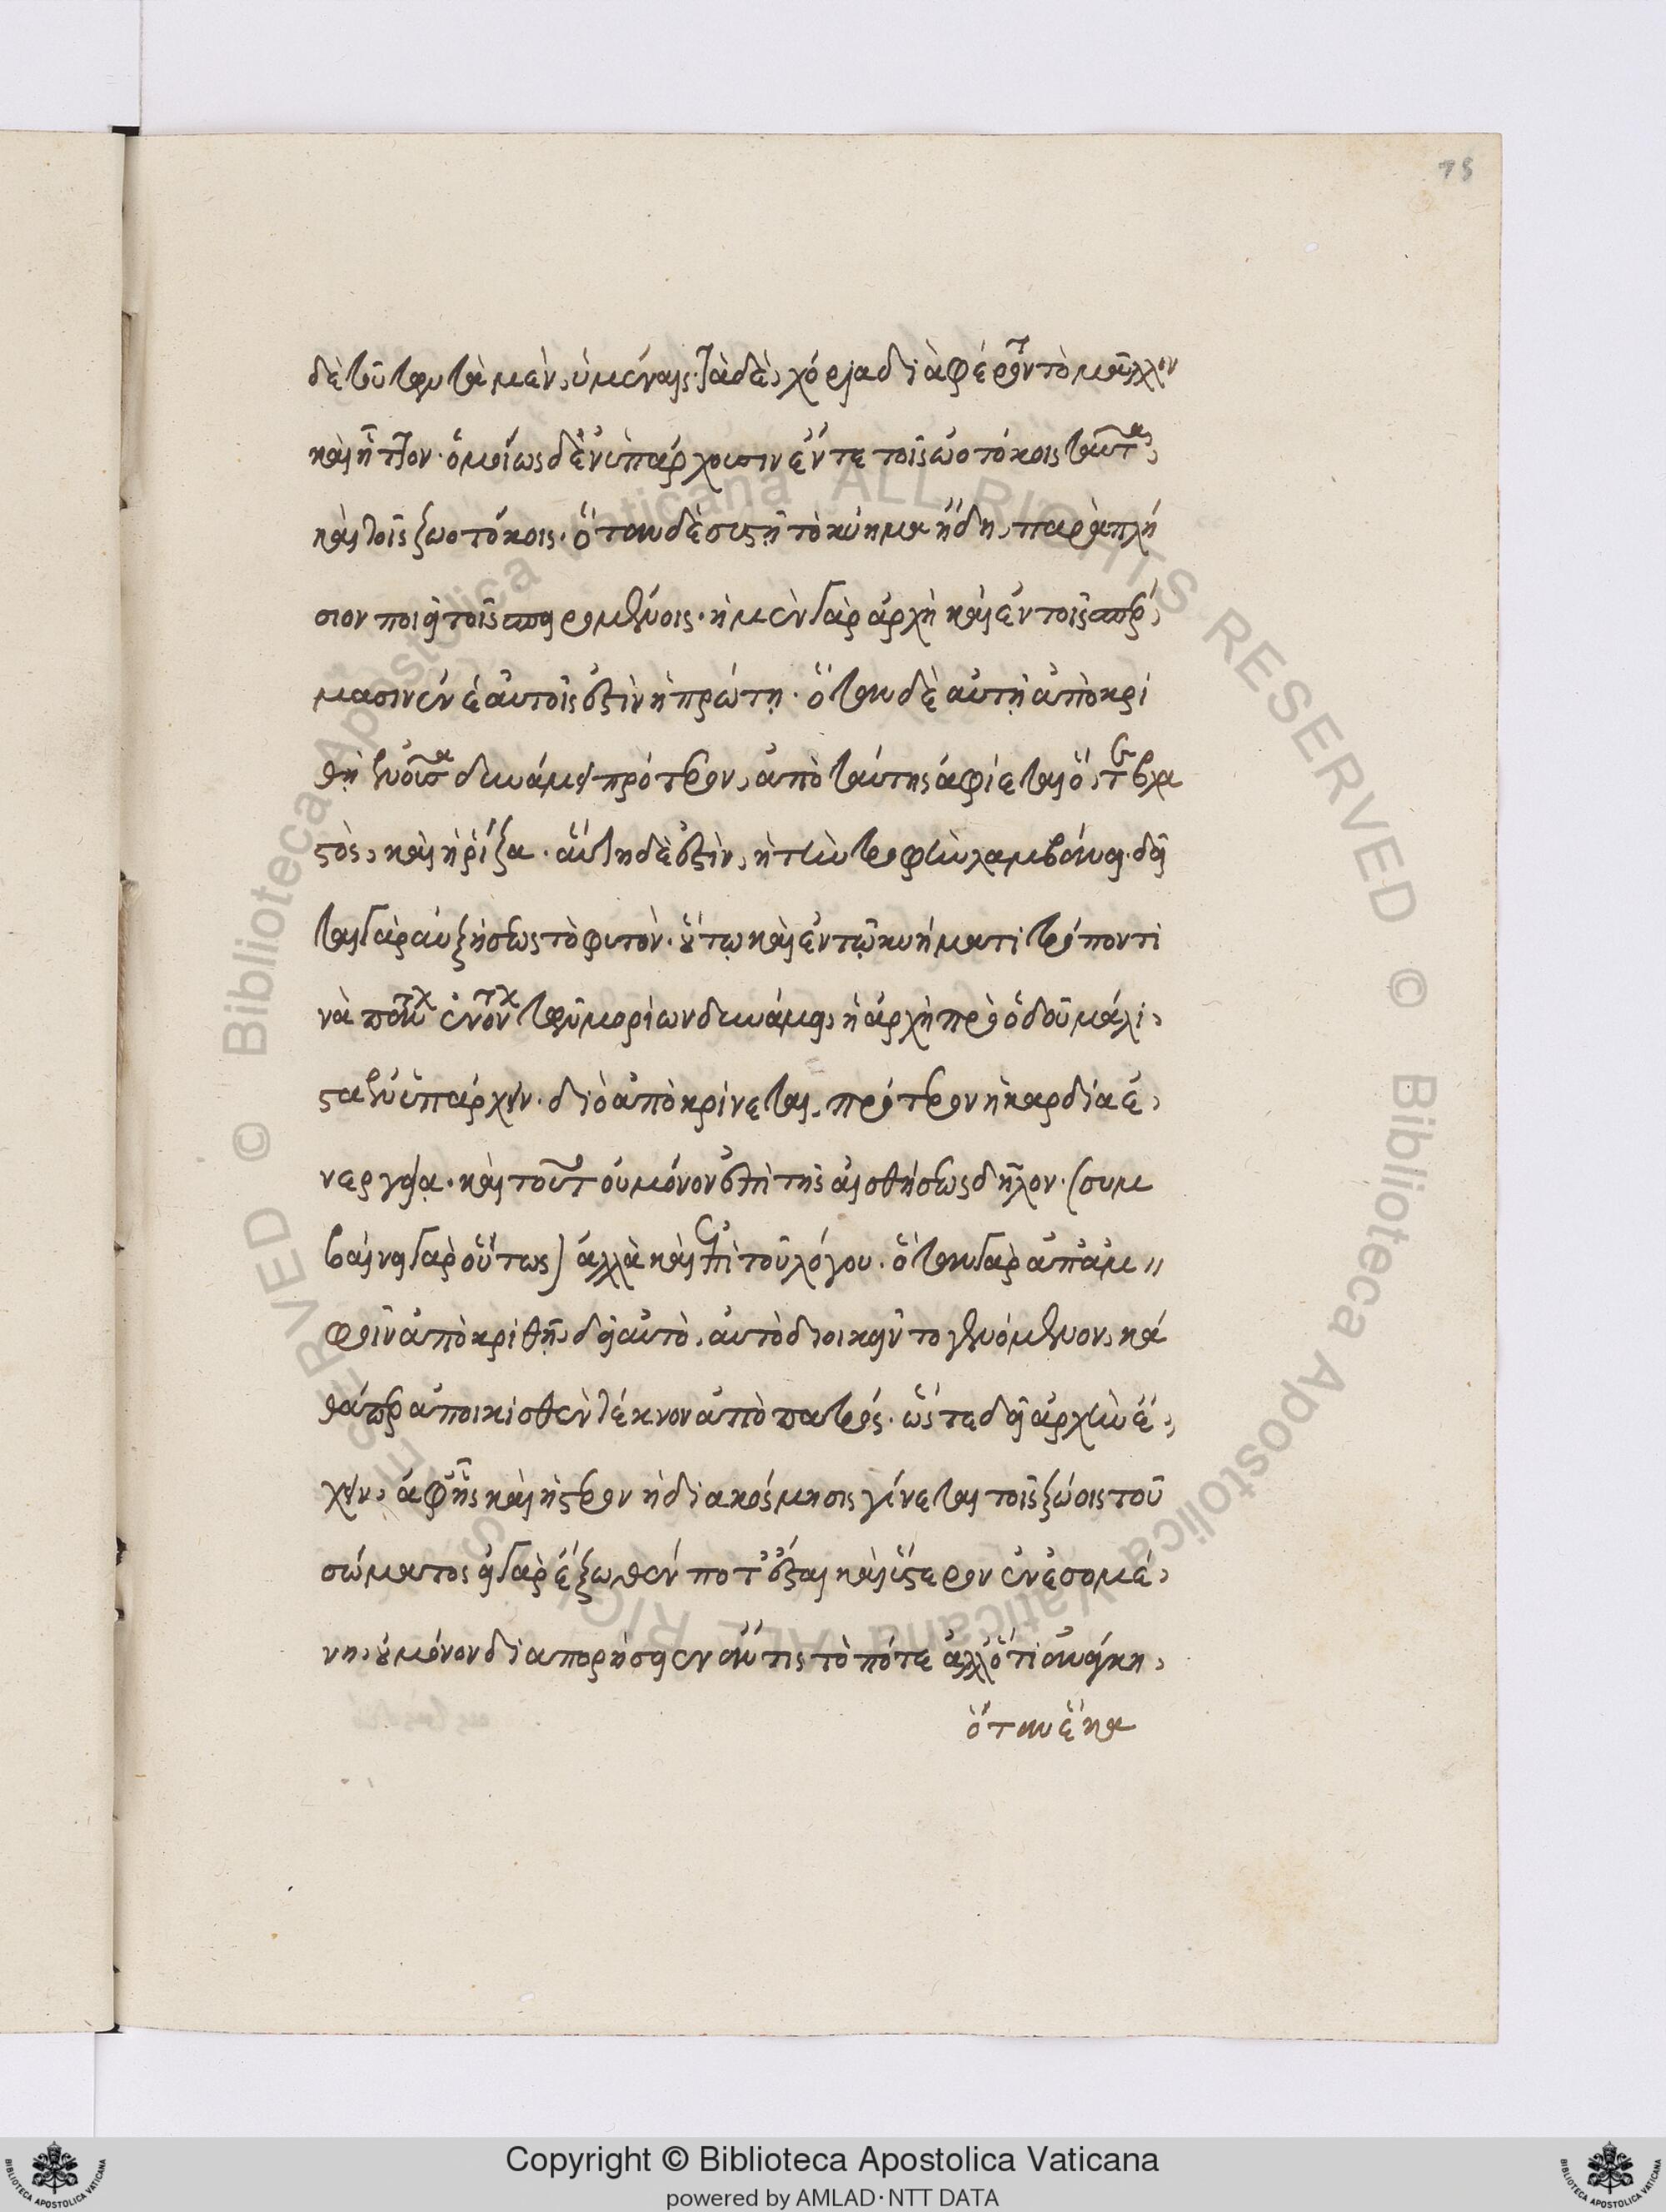 75
δὲ τούτων τὰ μὲν, ὑμένες· τὰ δὲ, χόρια διαφέροντα τὸ μᾶλλον
καὶ ἧττον· ὁμοίως δ' ἐνυπάρχουσιν ἔν τε τοῖς ὠοτόκοις ταῦτα,
καὶ τοῖς ζωοτόκοις. ὅταν δὲ συστῇ τὸ κύημα ἤδη, παραπλή
σιον ποιεῖ τοῖς σπειρομένοις· ἡ μὲν γὰρ ἀρχὴ καὶ ἐν τοῖς σπέρ,
μασιν ἐν ἑαυτοῖς ἐστὶν ἡ πρώτη. ὅταν δὲ αὐτὴ ἀποκρι
θῇ ἐνοῦσα δυνάμει πρότερον, ἀπὸ ταύτης ἀφίεται ὅ, τε βλα
στὸς, καὶ ἡ ῥίζα. αὕτη δὲ ἐστὶν, ἡ τὴν τροφὴν λαμβάνει. δεῖ
ται γὰρ αὐξήσεως τὸ φυτόν. οὕτω καὶ ἐν τῷ κυήματι τρόπον τι
νὰ πάντων ἐνόντων τῶν μορίων δυνάμει, ἡ ἀρχὴ πρὸ ὁδοῦ μάλι,
στα ἐνυπάρχειν. διὸ ἀποκρίνεται πρότερον ἡ καρδία ἐ,
νεργείᾳ. καὶ τοῦτο οὐ μόνον ἐπὶ τῆς αἰσθήσεως δῆλον. (συμ
βαίνει γὰρ οὕτως) ἀλλὰ καὶ ἐπὶ τοῦ λόγου. ὅταν γὰρ ἀπ' ἀμ
φοῖν ἀποκριθῇ, δεῖ αὐτὸ, αὐτὸ διοικεῖν τὸ γενόμενον, κα
θάπερ ἀποικισθὲν τέκνον ἀπὸ πατρός. ὥστε δεῖ ἀρχὴν ἔ,
χειν, ἀφ' ἧς καὶ ὕστερον ἡ διακόσμησις γίνεται τοῖς ζώοις τοῦ
σώματος εἰ γὰρ ἔξωθέν ποτ' ἔσται καὶ ὕστερον ἐνεσομέ,
νη, οὐ μόνον διαπορήσειεν ἄν τις τὸ πότε ἀλλ' ὅτι ἀνάγκη,
ὅταν ἕκα
Copyright © Biblioteca Apostolica Vaticana
powered by AMLAD·NTT DATA